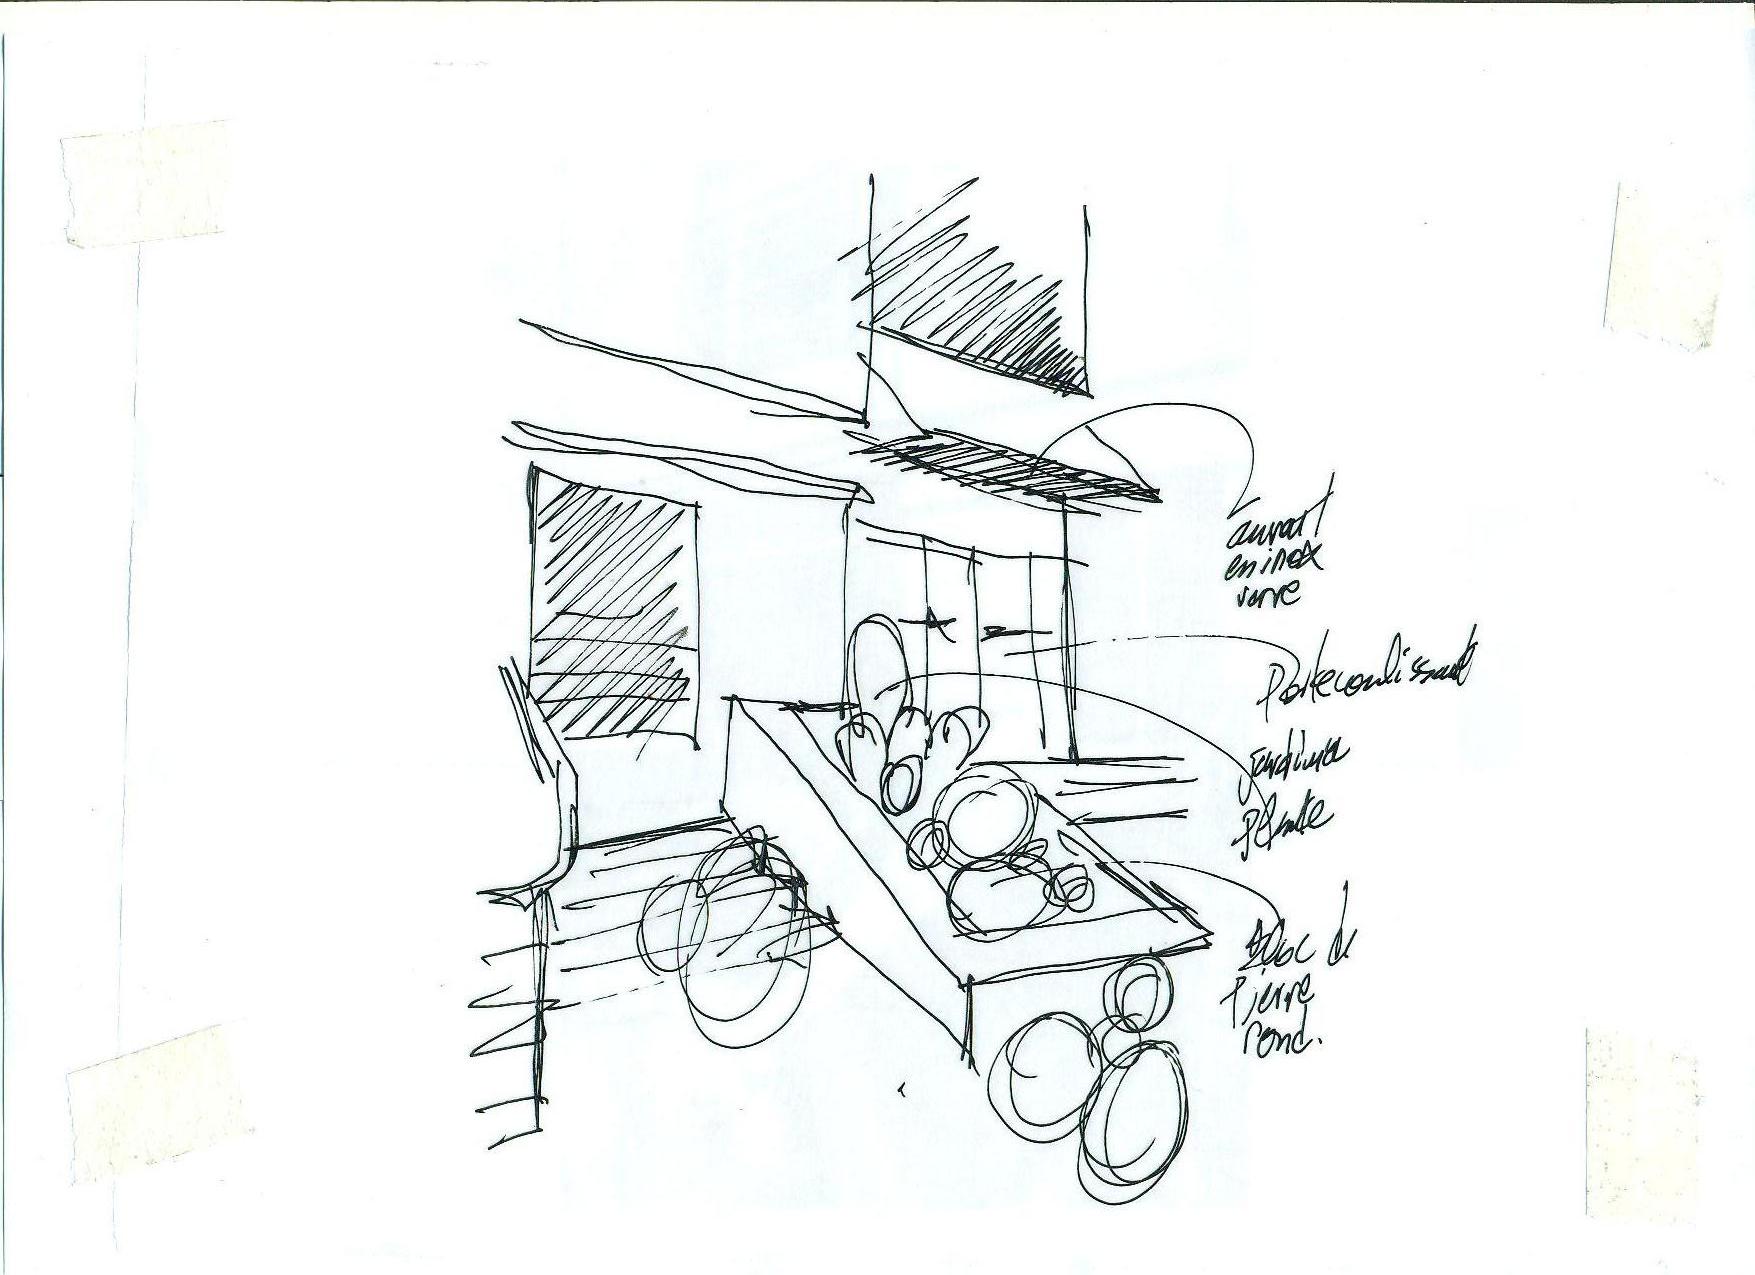 auvent
en inox
verre
Porte coulissant
jardinia
Plante
Bloc de
Pierre
rond.